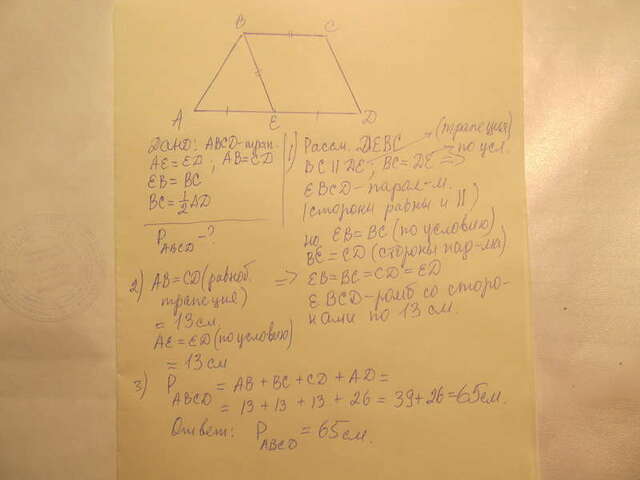 B C
A E D
Дано: ABCD-трап.
AE=ED; AB=CD
EB=BC
BC=½AD
P ABCD-?
1) Рассм. DEBC (трапеция)
BC||DE; BC=DE => по усл.
EBCD-парал-м.
(стороны равны и ||)
но EB=BC (по условию)
BE=CD (стороны пар-ма)
=> EB=BC=CD=ED
EBCD-ромб со сторо-
нами по 13 см.
2) AB=CD (равноб.
трапеция)
= 13 см
AE=ED (по условию)
= 13 см
3) P ABCD = AB+BC+CD+AD=
= 13+13+13+26 = 39+26=65 см.
Ответ: P ABCD = 65 см.